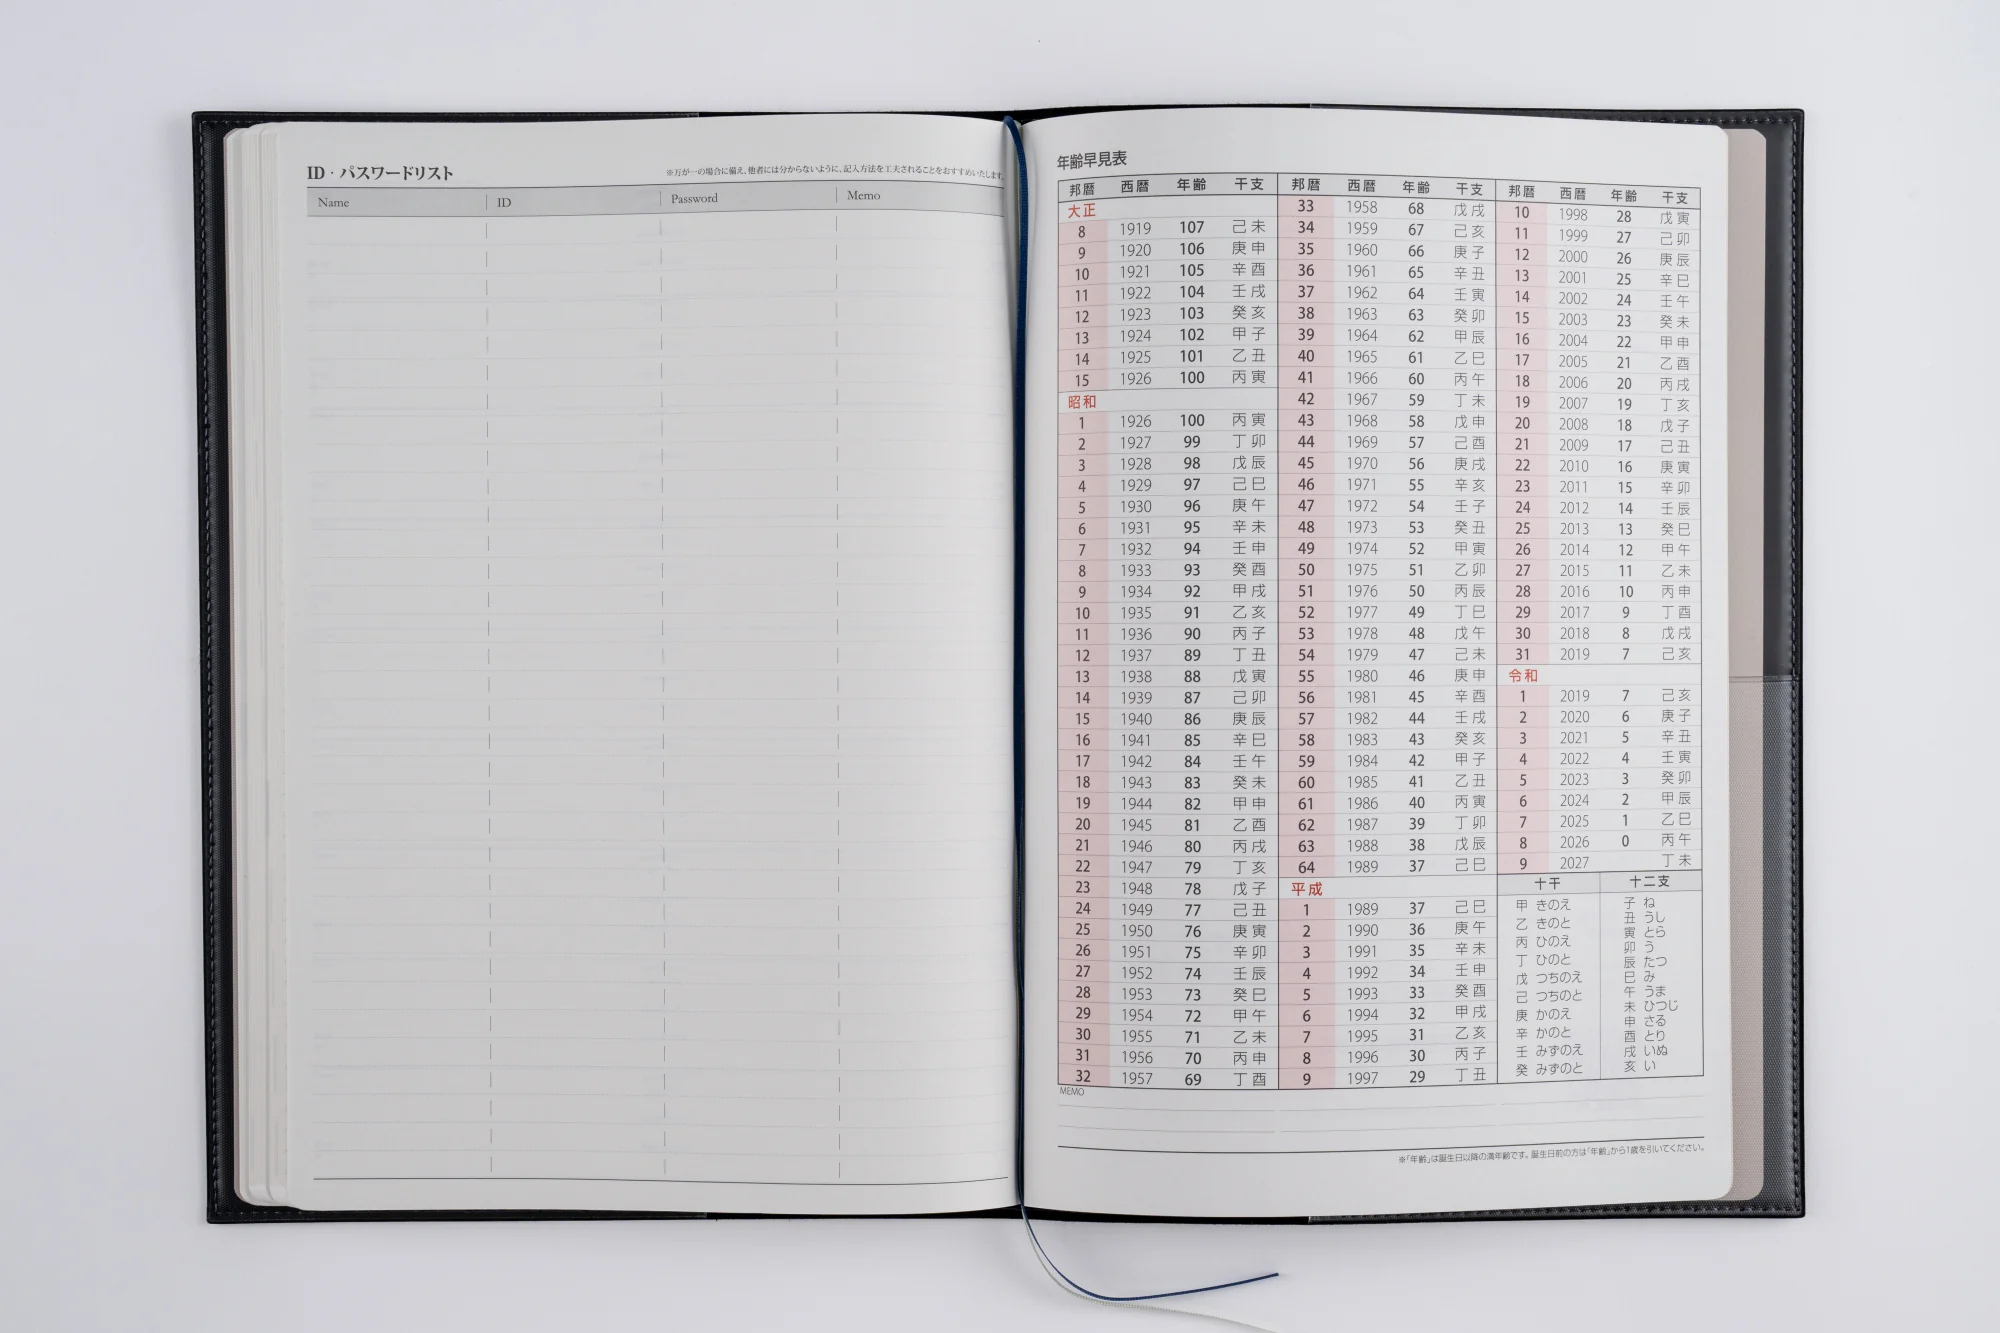 ID・パスワードリスト
※万が一の場合に備え、他者には分からないように、記入方法を工夫されることをおすすめいたします。
Name ID Password Memo
年齢早見表
邦暦 西暦 年齢 干支
大正
8 1919 107 己未
9 1920 106 庚申
10 1921 105 辛酉
11 1922 104 壬戌
12 1923 103 癸亥
13 1924 102 甲子
14 1925 101 乙丑
15 1926 100 丙寅
昭和
1 1926 100 丙寅
2 1927 99 丁卯
3 1928 98 戊辰
4 1929 97 己巳
5 1930 96 庚午
6 1931 95 辛未
7 1932 94 壬申
8 1933 93 癸酉
9 1934 92 甲戌
10 1935 91 乙亥
11 1936 90 丙子
12 1937 89 丁丑
13 1938 88 戊寅
14 1939 87 己卯
15 1940 86 庚辰
16 1941 85 辛巳
17 1942 84 壬午
18 1943 83 癸未
19 1944 82 甲申
20 1945 81 乙酉
21 1946 80 丙戌
22 1947 79 丁亥
23 1948 78 戊子
24 1949 77 己丑
25 1950 76 庚寅
26 1951 75 辛卯
27 1952 74 壬辰
28 1953 73 癸巳
29 1954 72 甲午
30 1955 71 乙未
31 1956 70 丙申
32 1957 69 丁酉
邦暦 西暦 年齢 干支
33 1958 68 戊戌
34 1959 67 己亥
35 1960 66 庚子
36 1961 65 辛丑
37 1962 64 壬寅
38 1963 63 癸卯
39 1964 62 甲辰
40 1965 61 乙巳
41 1966 60 丙午
42 1967 59 丁未
43 1968 58 戊申
44 1969 57 己酉
45 1970 56 庚戌
46 1971 55 辛亥
47 1972 54 壬子
48 1973 53 癸丑
49 1974 52 甲寅
50 1975 51 乙卯
51 1976 50 丙辰
52 1977 49 丁巳
53 1978 48 戊午
54 1979 47 己未
55 1980 46 庚申
56 1981 45 辛酉
57 1982 44 壬戌
58 1983 43 癸亥
59 1984 42 甲子
60 1985 41 乙丑
61 1986 40 丙寅
62 1987 39 丁卯
63 1988 38 戊辰
64 1989 37 己巳
平成
1 1989 37 己巳
2 1990 36 庚午
3 1991 35 辛未
4 1992 34 壬申
5 1993 33 癸酉
6 1994 32 甲戌
7 1995 31 乙亥
8 1996 30 丙子
9 1997 29 丁丑
邦暦 西暦 年齢 干支
10 1998 28 戊寅
11 1999 27 己卯
12 2000 26 庚辰
13 2001 25 辛巳
14 2002 24 壬午
15 2003 23 癸未
16 2004 22 甲申
17 2005 21 乙酉
18 2006 20 丙戌
19 2007 19 丁亥
20 2008 18 戊子
21 2009 17 己丑
22 2010 16 庚寅
23 2011 15 辛卯
24 2012 14 壬辰
25 2013 13 癸巳
26 2014 12 甲午
27 2015 11 乙未
28 2016 10 丙申
29 2017 9 丁酉
30 2018 8 戊戌
31 2019 7 己亥
令和
1 2019 7 己亥
2 2020 6 庚子
3 2021 5 辛丑
4 2022 4 壬寅
5 2023 3 癸卯
6 2024 2 甲辰
7 2025 1 乙巳
8 2026 0 丙午
9 2027 丁未
十干
甲 きのえ
乙 きのと
丙 ひのえ
丁 ひのと
戊 つちのえ
己 つちのと
庚 かのえ
辛 かのと
壬 みずのえ
癸 みずのと
十二支
子 ね
丑 うし
寅 とら
卯 う
辰 たつ
巳 み
午 うま
未 ひつじ
申 さる
酉 とり
戌 いぬ
亥 い
MEMO
※「年齢」は誕生日以降の満年齢です。誕生日前の方は「年齢」から1歳を引いてください。